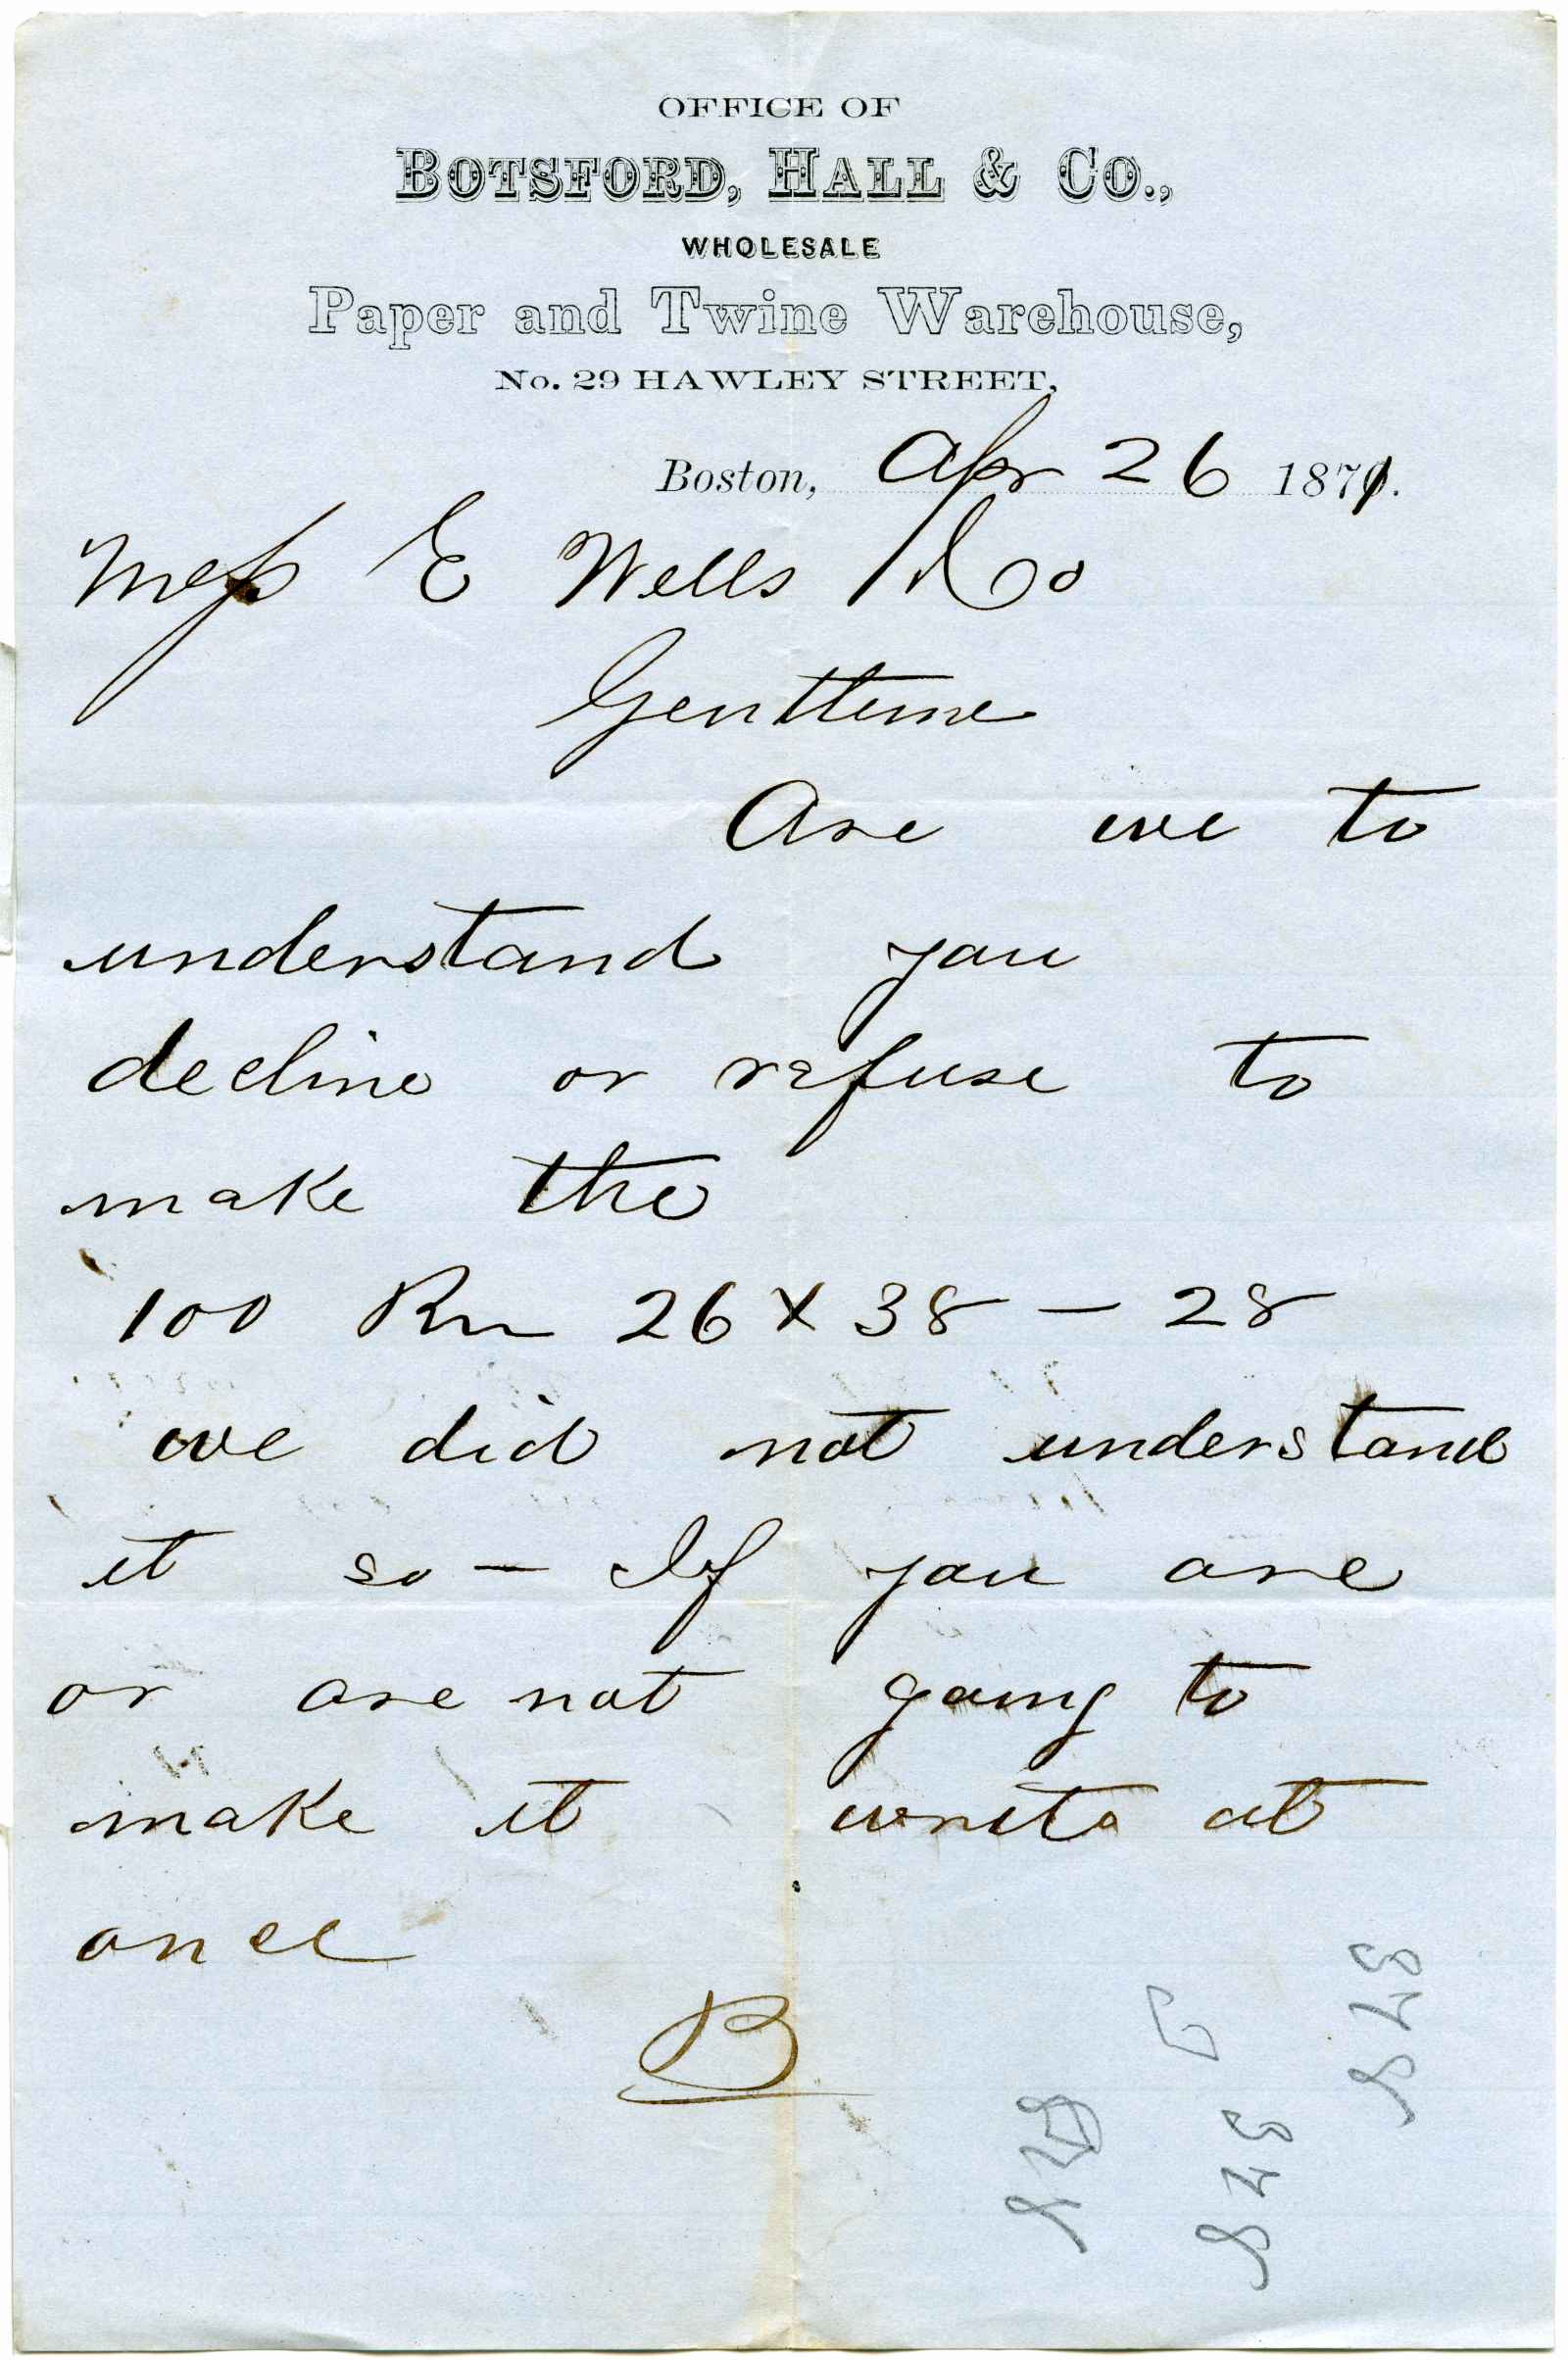 OFFICE OF
BOTSFORD, HALL & CO.,
WHOLESALE
Paper and Twine Warehouse,
No. 29 HAWLEY STREET,
Boston, Apr 26 1871.
Mess E Wells & Co
Gentleme
Are we to
understand you
decline or refuse to
make the
100 Rm 26 x 38 — 28
we did not understand
it so — If you are
or are not going to
make it write at
once
B